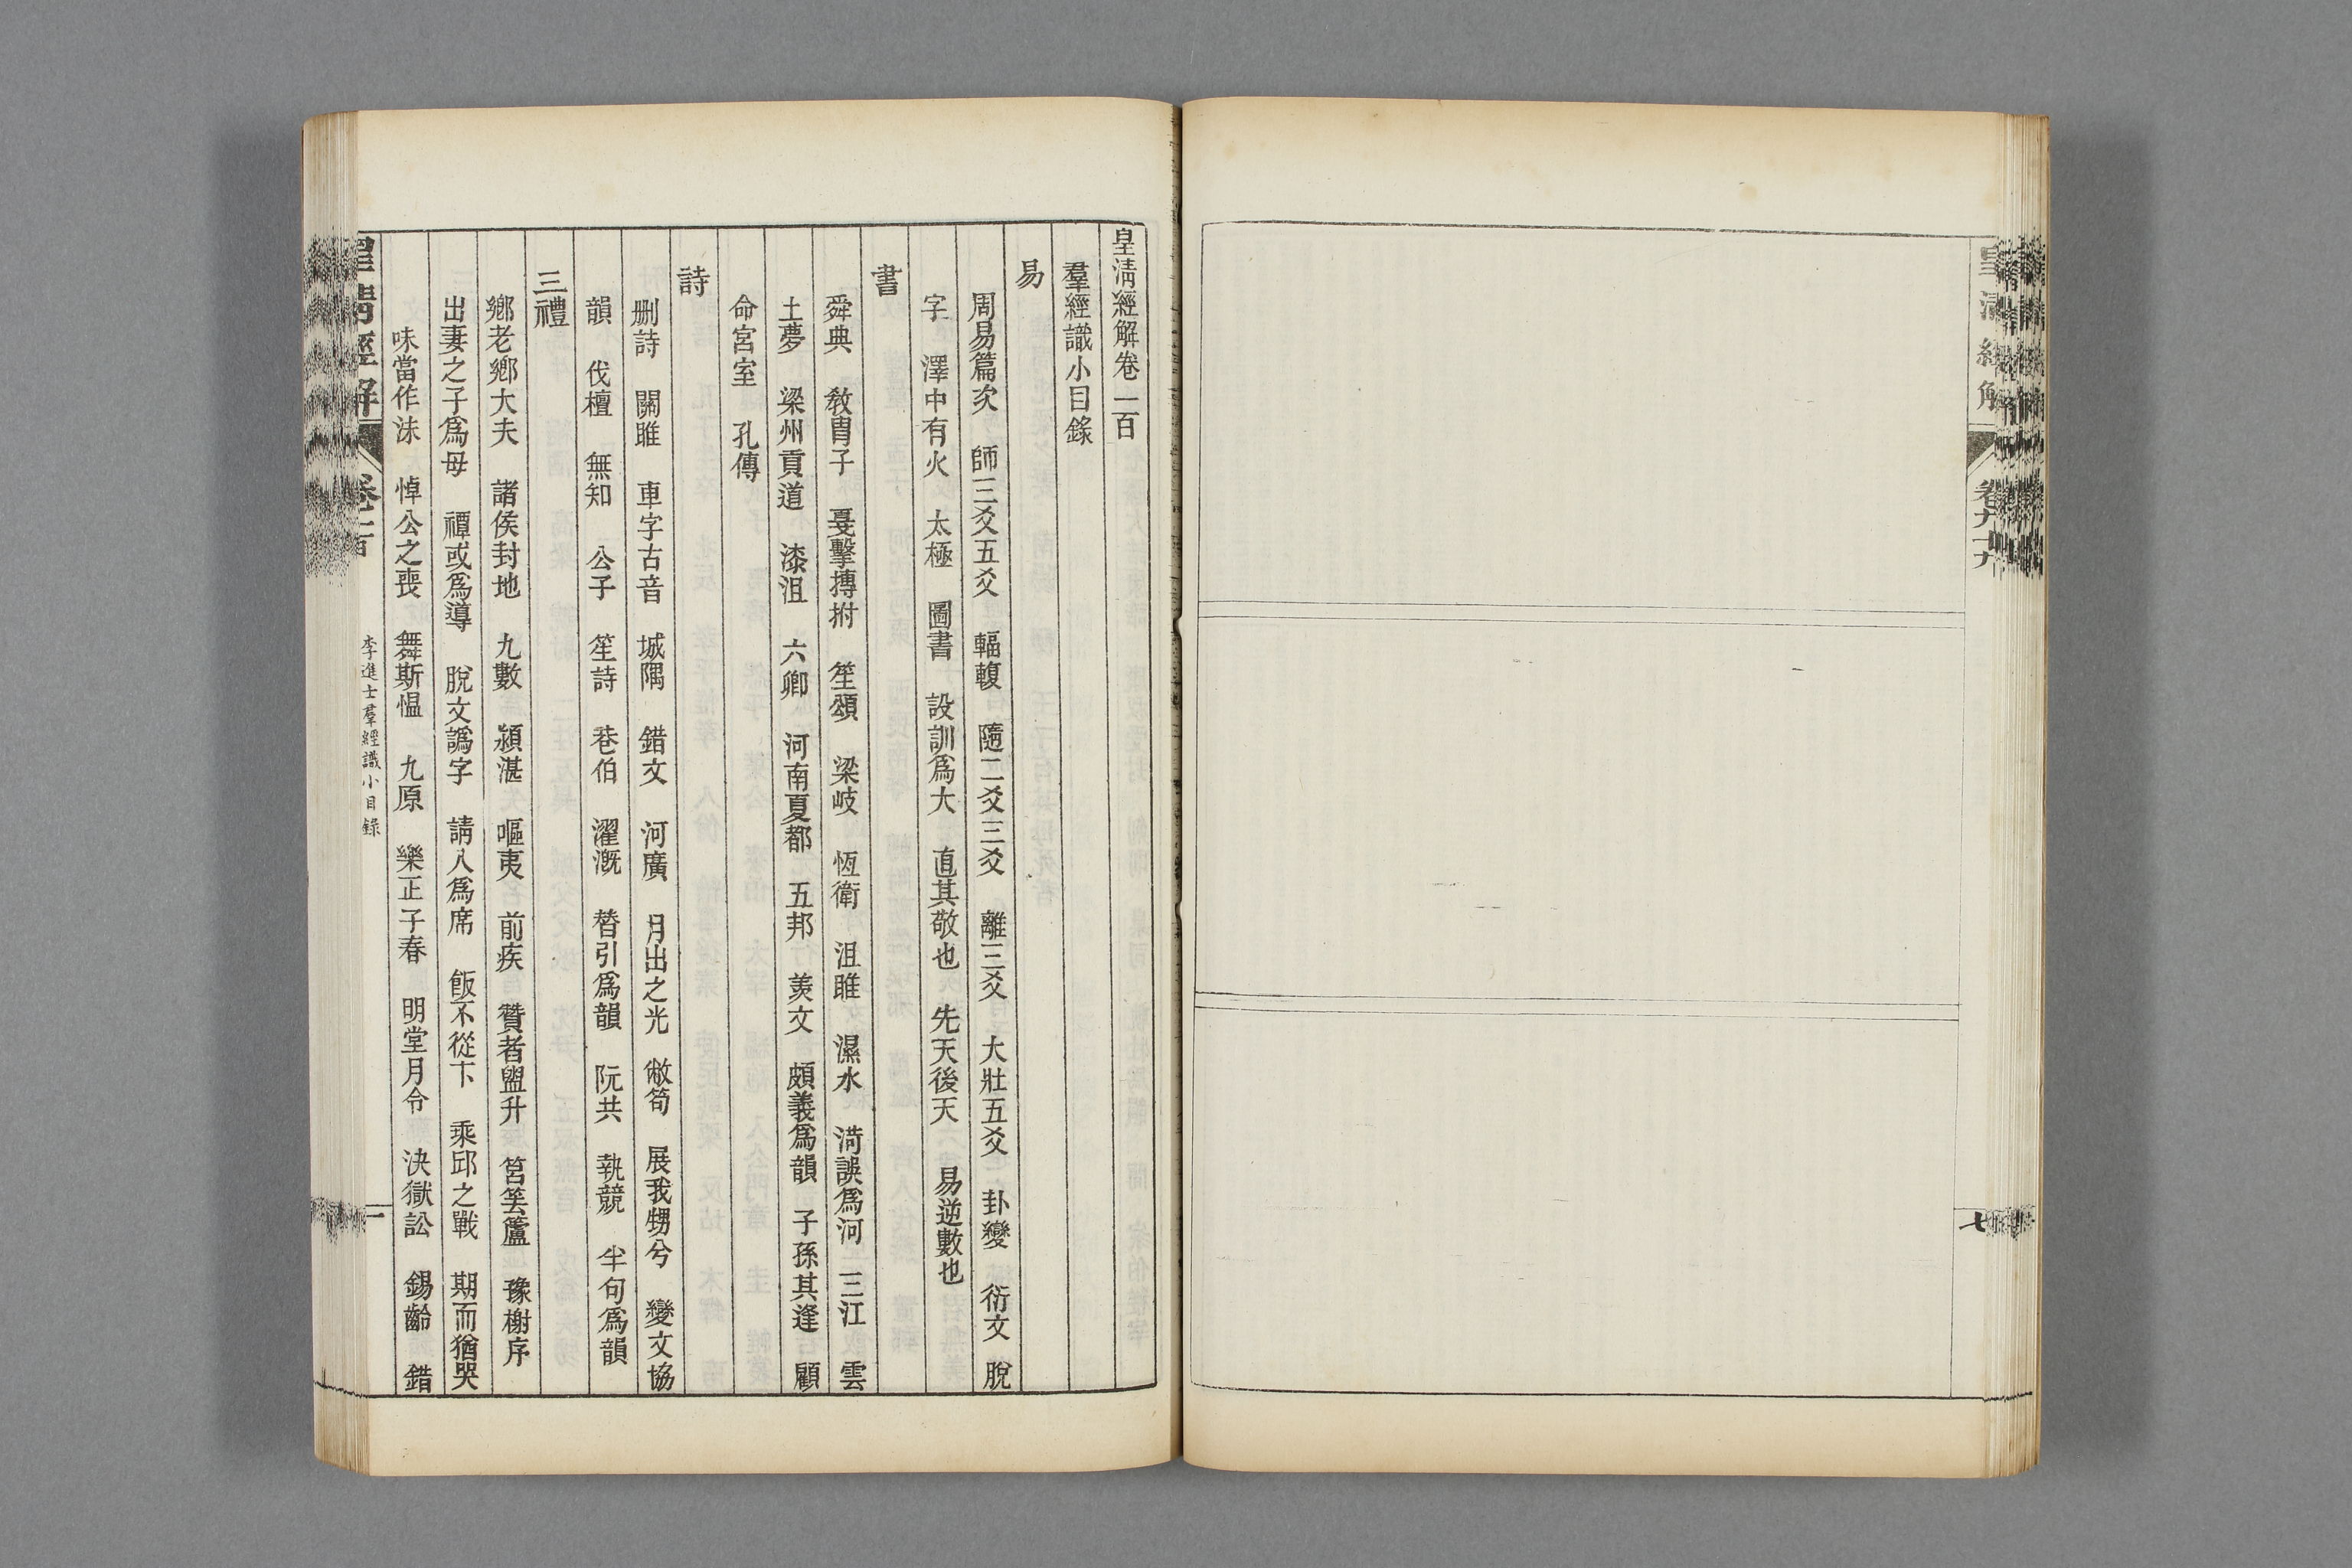 皇清經解
卷九十九
七
皇清經解卷一百
羣經識小目錄
易
周易篇次 師三爻五爻 輻輹 隨二爻三爻 離三爻 大壯五爻 卦變 衍文 脫
字 澤中有火 太極 圖書 設訓爲大 直其敬也 先天後天 易逆數也
書
舜典 敎胄子 戛擊搏拊 笙頌 梁岐 恆衛 沮雎 濕水 菏誤爲河 三江 雲
土夢 梁州貢道 漆沮 六卿 河南夏都 五邦 羨文 頗義爲韻 子孫其逢 顧
命宮室 孔傳
詩
刪詩 關雎 車字古音 城隅 錯文 河廣 月出之光 敝笱 展我甥兮 變文協
韻 伐檀 無知 公子 笙詩 巷伯 濯漑 替引爲韻 阮共 執競 半句爲韻
三禮
鄉老鄉大夫 諸侯封地 九數 潁湛 嘔夷 前疾 贊者盥升 筥筤籚 豫榭序
出妻之子爲母 禫或爲導 脫文譌字 請入爲席 飯不從下 乘邱之戰 期而猶哭
味當作沬 悼公之喪 舞斯慍 九原 樂正子春 明堂月令 決獄訟 錫齡 錯
皇清經解
卷一百
李進士羣經識小目錄
一